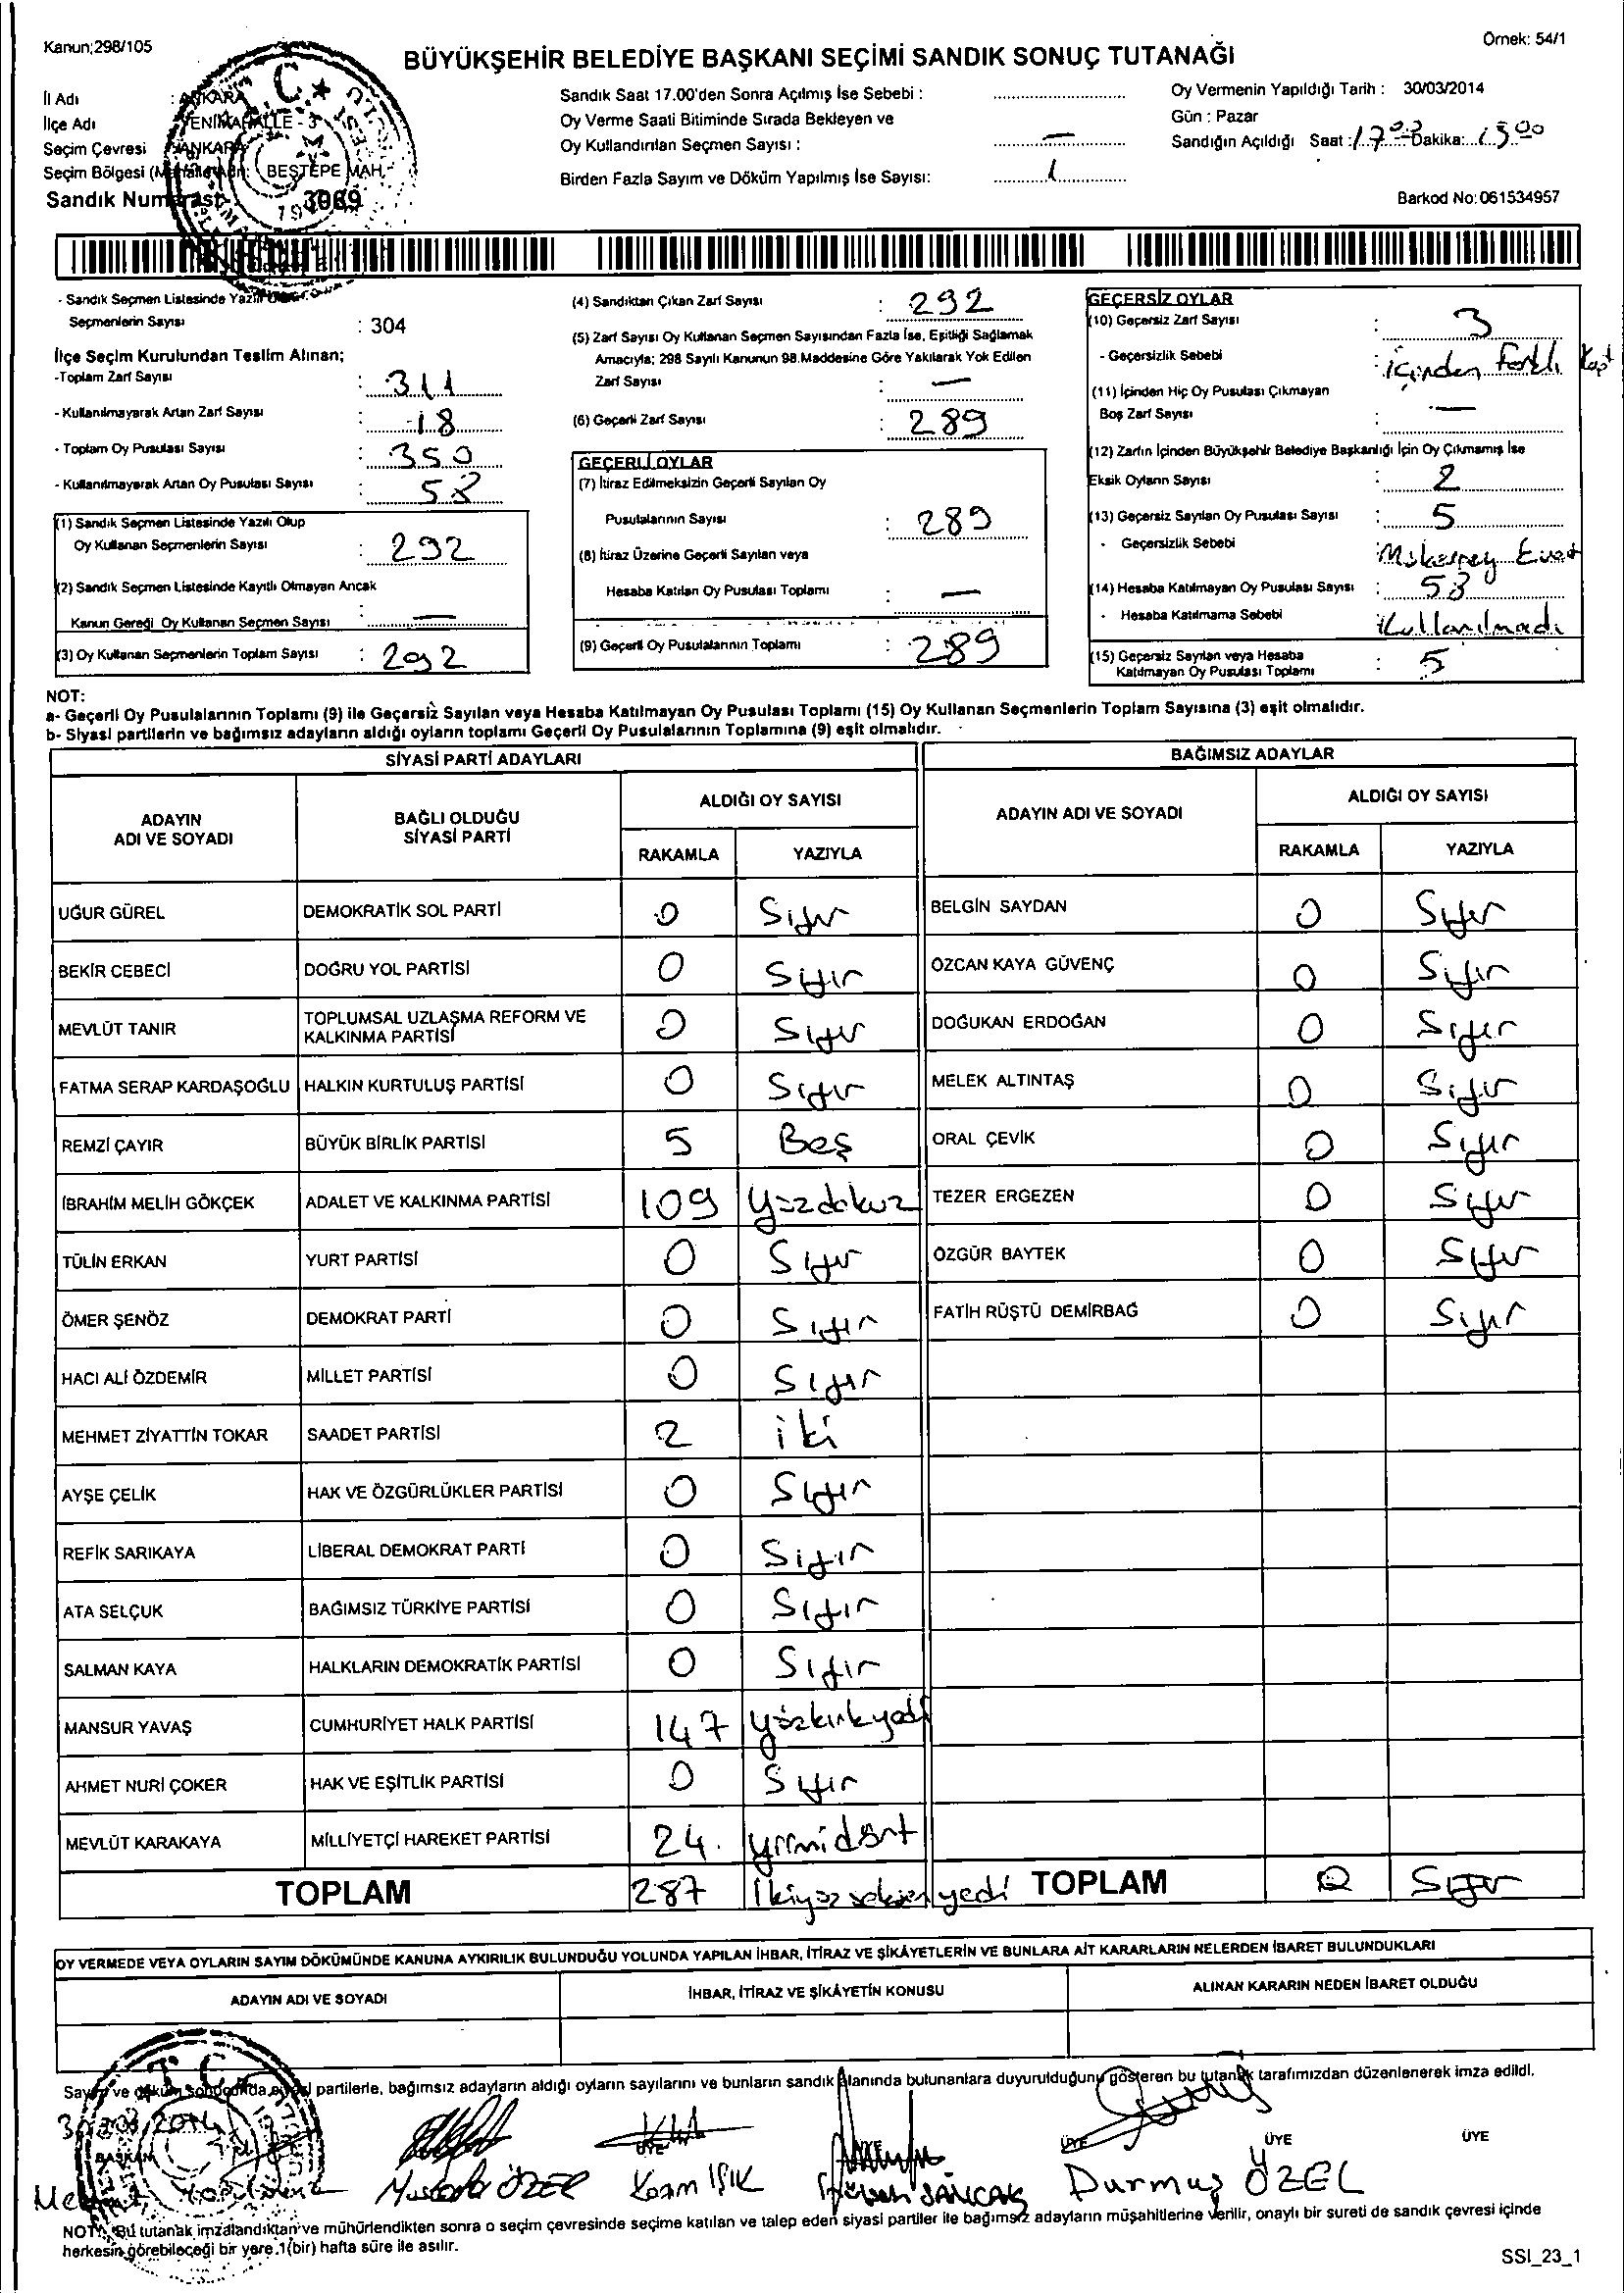 Kanun;298/105
Örnek: 54/1
BÜYÜKŞEHİR BELEDİYE BAŞKANI SEÇİMİ SANDIK SONUÇ TUTANAĞI
İl Adı : ANKARA
İlçe Adı YENİMAHALLE - 3
Seçim Çevresi ANKARA
Seçim Bölgesi BEŞTEPE MAH.
Sandık Numarası 3069
Sandık Saat 17.00'den Sonra Açılmış İse Sebebi :
Oy Verme Saati Bitiminde Sırada Bekleyen ve
Oy Kullandırılan Seçmen Sayısı : —
Birden Fazla Sayım ve Döküm Yapılmış İse Sayısı: 1
Oy Vermenin Yapıldığı Tarih : 30/03/2014
Gün : Pazar
Sandığın Açıldığı Saat : Dakika:
Barkod No:061534957
- Sandık Seçmen Listesinde Yazılı
Seçmenlerin Sayısı : 304
İlçe Seçim Kurulundan Teslim Alınan;
-Toplam Zarf Sayısı : 311
- Kullanılmayarak Artan Zarf Sayısı : 18
- Toplam Oy Pusulası Sayısı : 350
- Kullanılmayarak Artan Oy Pusulası Sayısı : 58
(1) Sandık Seçmen Listesinde Yazılı Olup
Oy Kullanan Seçmenlerin Sayısı : 292
(2) Sandık Seçmen Listesinde Kayıtlı Olmayan Ancak
Kanun Gereği Oy Kullanan Seçmen Sayısı : —
(3) Oy Kullanan Seçmenlerin Toplam Sayısı : 292
(4) Sandıktan Çıkan Zarf Sayısı : 292
(5) Zarf Sayısı Oy Kullanan Seçmen Sayısından Fazla İse, Eşitliği Sağlamak
Amacıyla; 298 Sayılı Kanunun 98.Maddesine Göre Yakılarak Yok Edilen
Zarf Sayısı : —
(6) Geçerli Zarf Sayısı : 289
GEÇERLİ OYLAR
(7) İtiraz Edilmeksizin Geçerli Sayılan Oy
Pusulalarının Sayısı : 289
(8) İtiraz Üzerine Geçerli Sayılan veya
Hesaba Katılan Oy Pusulası Toplamı : —
(9) Geçerli Oy Pusulalarının Toplamı : 289
GEÇERSİZ OYLAR
(10) Geçersiz Zarf Sayısı : 3
- Geçersizlik Sebebi : içinden farklı
(11) İçinden Hiç Oy Pusulası Çıkmayan
Boş Zarf Sayısı : —
(12) Zarfın İçinden Büyükşehir Belediye Başkanlığı İçin Oy Çıkmamış İse
Eksik Oyların Sayısı : 2
(13) Geçersiz Sayılan Oy Pusulası Sayısı : 5
- Geçersizlik Sebebi
(14) Hesaba Katılmayan Oy Pusulası Sayısı : 58
- Hesaba Katılmama Sebebi Kullanılmadı
(15) Geçersiz Sayılan veya Hesaba
Katılmayan Oy Pusulası Toplamı : 5
NOT:
a- Geçerli Oy Pusulalarının Toplamı (9) ile Geçersiz Sayılan veya Hesaba Katılmayan Oy Pusulası Toplamı (15) Oy Kullanan Seçmenlerin Toplam Sayısına (3) eşit olmalıdır.
b- Siyasi partilerin ve bağımsız adayların aldığı oyların toplamı Geçerli Oy Pusulalarının Toplamına (9) eşit olmalıdır.
SİYASİ PARTİ ADAYLARI
BAĞIMSIZ ADAYLAR
ADAYIN ADI VE SOYADI
BAĞLI OLDUĞU SİYASİ PARTİ
ALDIĞI OY SAYISI
RAKAMLA YAZIYLA
ADAYIN ADI VE SOYADI
ALDIĞI OY SAYISI
RAKAMLA YAZIYLA
UĞUR GÜREL DEMOKRATİK SOL PARTİ 0 Sıfır BELGİN SAYDAN 0 Sıfır
BEKİR CEBECİ DOĞRU YOL PARTİSİ 0 Sıfır ÖZCAN KAYA GÜVENÇ 0 Sıfır
MEVLÜT TANIR TOPLUMSAL UZLAŞMA REFORM VE KALKINMA PARTİSİ 0 Sıfır DOĞUKAN ERDOĞAN 0 Sıfır
FATMA SERAP KARDAŞOĞLU HALKIN KURTULUŞ PARTİSİ 0 Sıfır MELEK ALTINTAŞ 0 Sıfır
REMZİ ÇAYIR BÜYÜK BİRLİK PARTİSİ 5 Beş ORAL ÇEVİK 0 Sıfır
İBRAHİM MELİH GÖKÇEK ADALET VE KALKINMA PARTİSİ 109 yüzdokuz TEZER ERGEZEN 0 Sıfır
TÜLİN ERKAN YURT PARTİSİ 0 Sıfır ÖZGÜR BAYTEK 0 Sıfır
ÖMER ŞENÖZ DEMOKRAT PARTİ 0 Sıfır FATİH RÜŞTÜ DEMİRBAĞ 0 Sıfır
HACI ALİ ÖZDEMİR MİLLET PARTİSİ 0 Sıfır
MEHMET ZİYATTİN TOKAR SAADET PARTİSİ 2 iki
AYŞE ÇELİK HAK VE ÖZGÜRLÜKLER PARTİSİ 0 Sıfır
REFİK SARIKAYA LİBERAL DEMOKRAT PARTİ 0 Sıfır
ATA SELÇUK BAĞIMSIZ TÜRKİYE PARTİSİ 0 Sıfır
SALMAN KAYA HALKLARIN DEMOKRATİK PARTİSİ 0 Sıfır
MANSUR YAVAŞ CUMHURİYET HALK PARTİSİ 147 yüzkırkyedi
AHMET NURİ ÇOKER HAK VE EŞİTLİK PARTİSİ 0 Sıfır
MEVLÜT KARAKAYA MİLLİYETÇİ HAREKET PARTİSİ 24. yirmidört
TOPLAM 287 İkiyüzseksenyedi TOPLAM 0 Sıfır
OY VERMEDE VEYA OYLARIN SAYIM DÖKÜMÜNDE KANUNA AYKIRILIK BULUNDUĞU YOLUNDA YAPILAN İHBAR, İTİRAZ VE ŞİKÂYETLERİN VE BUNLARA AİT KARARLARIN NELERDEN İBARET BULUNDUKLARI
ADAYIN ADI VE SOYADI İHBAR, İTİRAZ VE ŞİKÂYETİN KONUSU ALINAN KARARIN NEDEN İBARET OLDUĞU
Sayım ve döküm sonucunda siyasi partilerle, bağımsız adayların aldığı oyların sayılarını ve bunların sandık alanında bulunanlara duyurulduğunu gösteren bu tutanak tarafımızdan düzenlenerek imza edildi.
BAŞKAN ÜYE ÜYE ÜYE ÜYE
Mustafa ÖZER Kazım IŞIK SANCAK Durmuş ÖZEL
NOT: Bu tutanak imzalandıktan ve mühürlendikten sonra o seçim çevresinde seçime katılan ve talep eden siyasi partiler ile bağımsız adayların müşahitlerine verilir, onaylı bir sureti de sandık çevresi içinde
herkesin görebileceği bir yere 1(bir) hafta süre ile asılır.
SSI_23_1